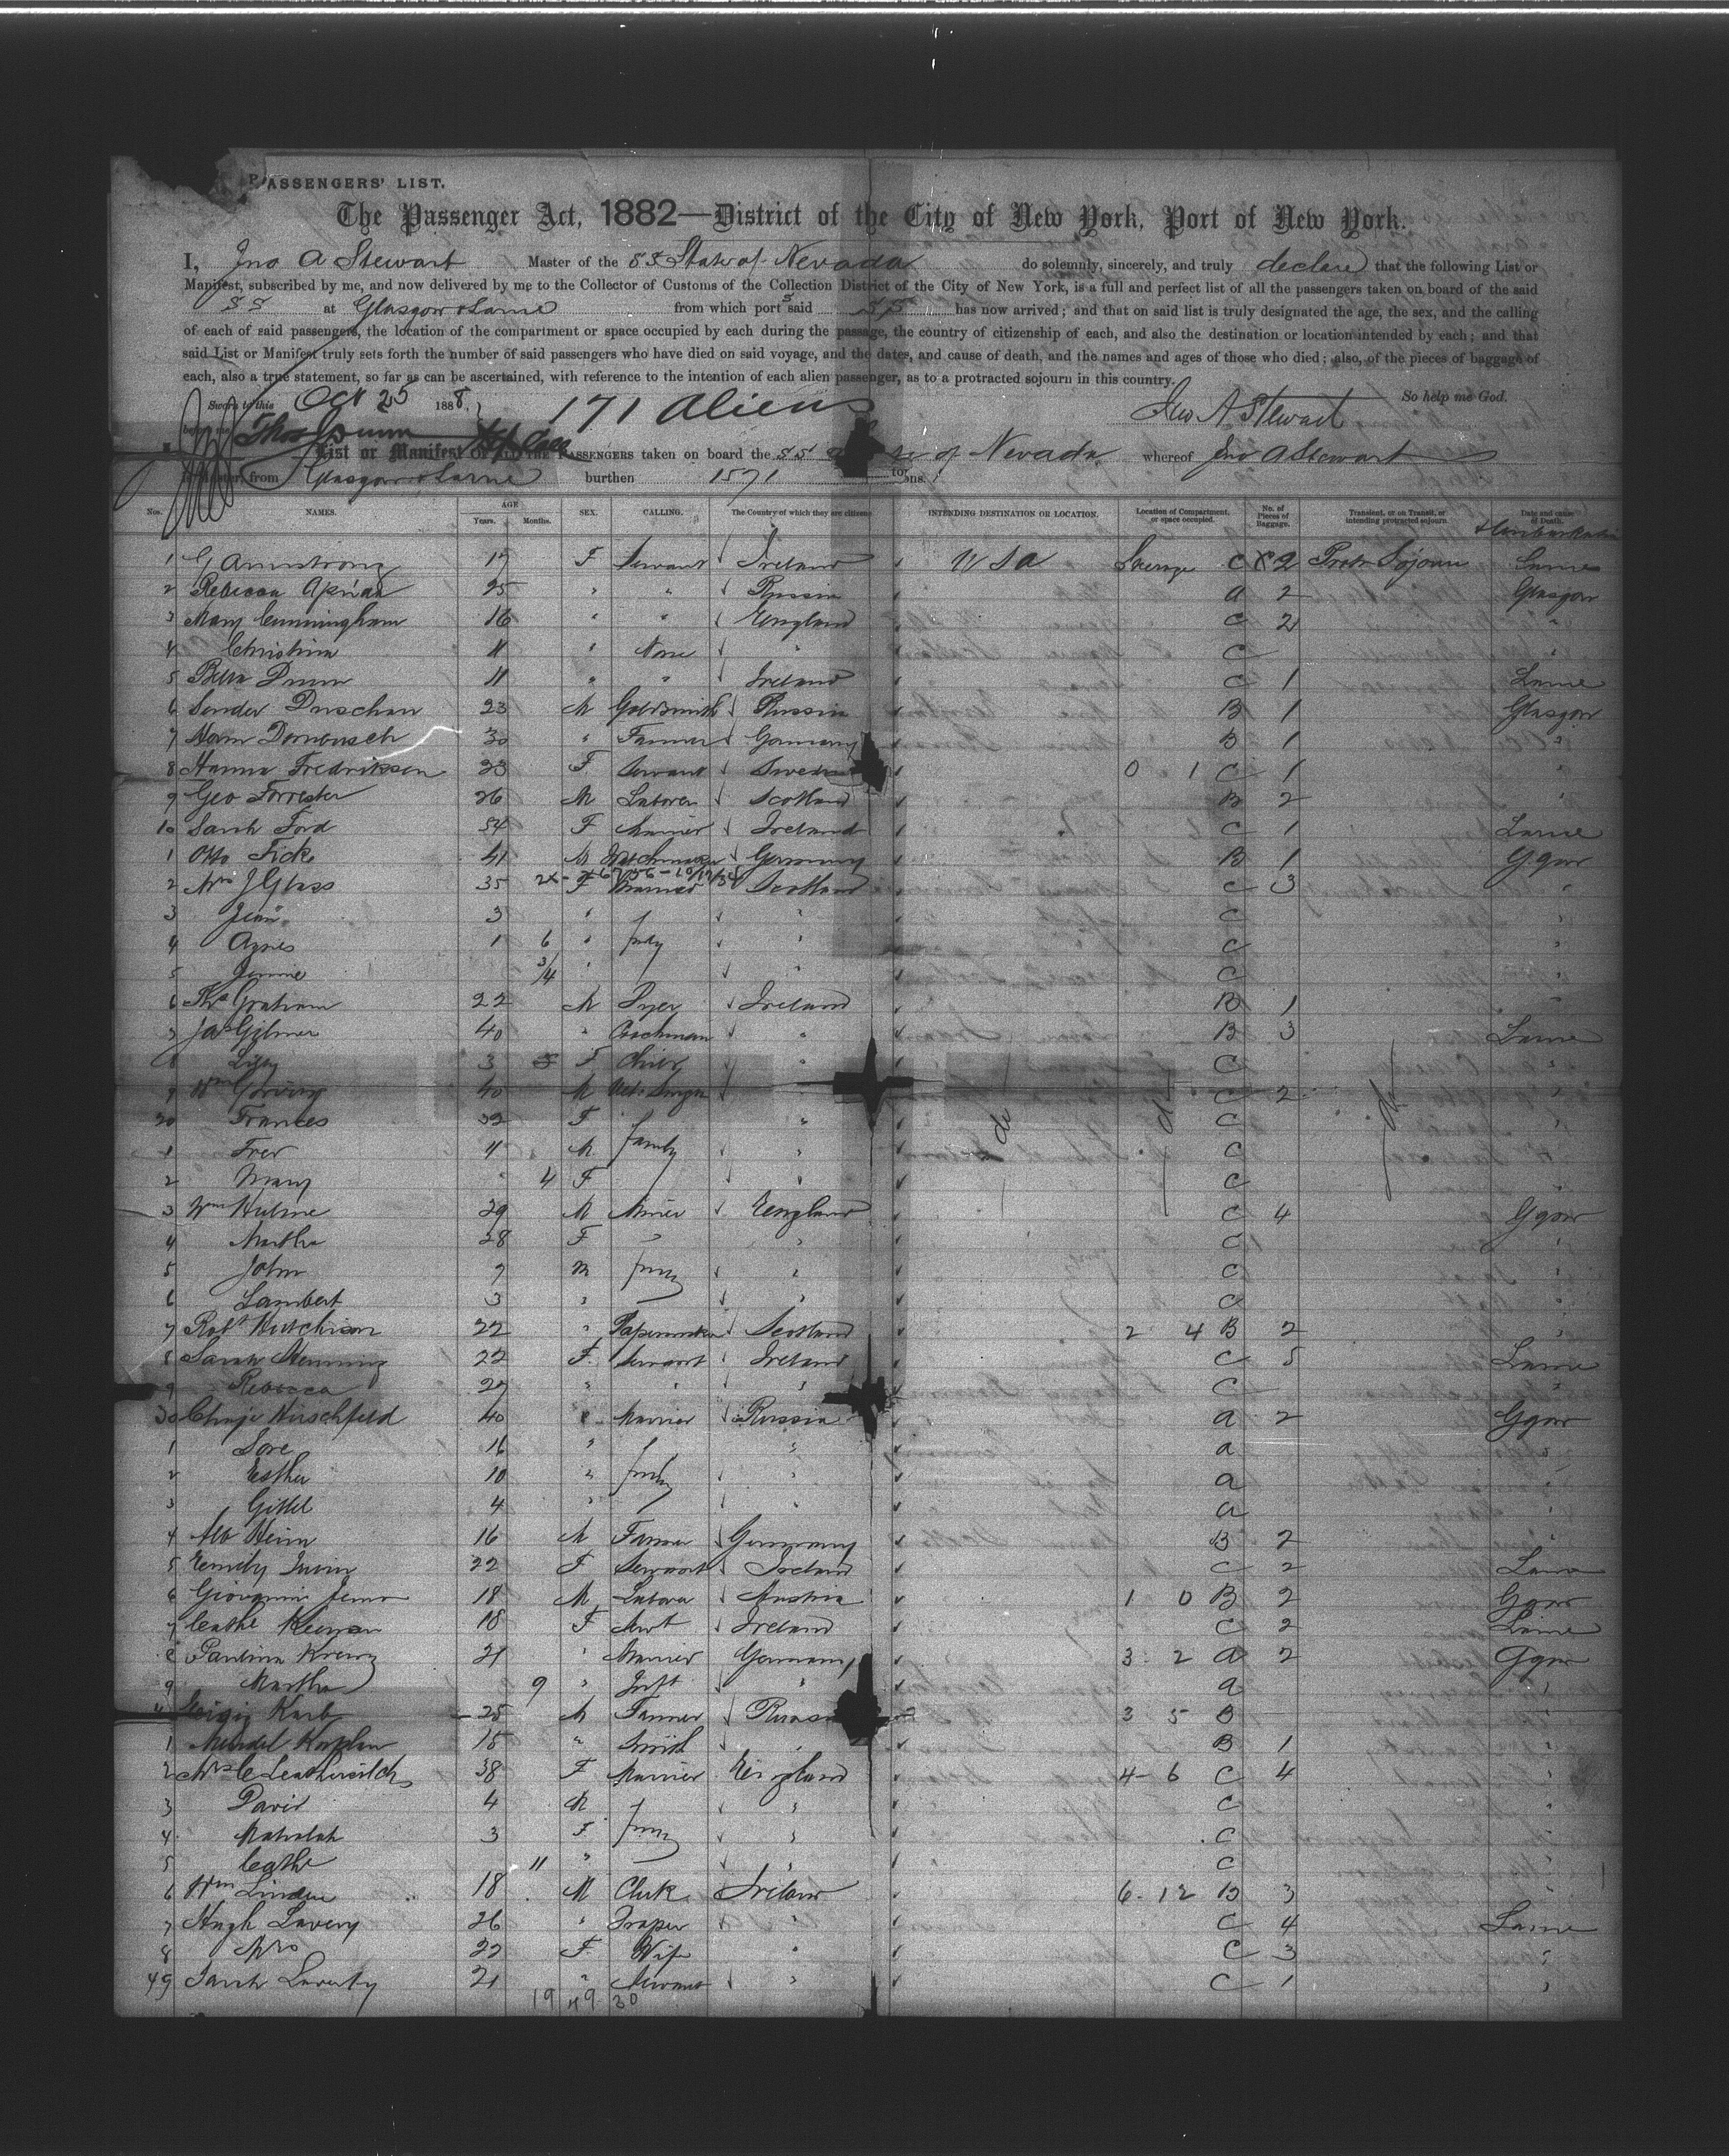 PASSENGERS' LIST.
The Passenger Act, 1882—District of the City of New York, Port of New York.
I, Jno A Stewart Master of the SS State of Nevada do solemnly, sincerely, and truly declare that the following List or
Manifest, subscribed by me, and now delivered by me to the Collector of Customs of the Collection District of the City of New York, is a full and perfect list of all the passengers taken on board of the said
SS at Glasgow & Larne from which ports said SS has now arrived; and that on said list is truly designated the age, the sex, and the calling
of each of said passengers, the location of the compartment or space occupied by each during the passage, the country of citizenship of each, and also the destination or location intended by each; and that
said List or Manifest truly sets forth the number of said passengers who have died on said voyage, and the dates, and cause of death, and the names and ages of those who died; also, of the pieces of baggage of
each, also a true statement, so far as can be ascertained, with reference to the intention of each alien passenger, as to a protracted sojourn in this country.
So help me God.
Sworn to this Oct 25 1888. 171 Aliens Jno A Stewart
before me
List or Manifest OF ALL THE PASSENGERS taken on board the SS of Nevada whereof Jno A Stewart
is Master, from Glasgow & Larne burthen 1571 tons.
Nos. NAMES. AGE Years. Months. SEX. CALLING. The Country of which they are citizens. INTENDING DESTINATION OR LOCATION. Location of Compartment, or space occupied. No. of Pieces of Baggage. Transient, or on Transit, or intending protracted sojourn Date and cause of Death. & Embarkation
1 G Armstrong 17 F Servant Ireland USA Steerage C 2 Protr Sojourn Larne
2 Rebecca 25 " " Russia A 2 Glasgow
3 Mary Cunningham 16 " " England C 2 "
4 Christina 11 " None " C "
5 Dunn 11 " " Ireland C 1 Larne
6 Sender Duschan 23 M Goldsmith Russia B 1 Glasgow
7 Dornbusch 30 " Farmer Germany B 1 "
8 Hanna Fredriksen 23 F Servant Sweden 0 1 C 1 "
9 Geo Forrester 26 M Laborer Scotland B 2 "
10 Sarah Ford 54 F Married Ireland C 1 Larne
1 Otto Fick 41 M Watchmaker Germany B 1 Ggow
2 Mrs J Glass 35 F Married Scotland C 3 "
3 Jean 3 " " C "
4 Agnes 1 6 " family " C "
5 Jennie 3/4 " " C "
6 Thos Graham 22 M Dyer Ireland B 1 "
7 Jas Gilmer 40 " Coachman " B 3 Larne
8 Lizzy 3 F Child " C "
9 Wm 40 M C 2 "
20 Frances 32 F " C "
1 Fred 4 M family " C "
2 Mary 4 F " C "
3 Wm Hulme 29 M Miner England C 4 Ggow
4 Martha 28 F " C "
5 John 7 M family " C "
6 Lambert 3 " " C "
7 Robt Hutchison 22 " Papermaker Scotland 2 4 B 2 "
8 Sarah Henning 22 F. Servant Ireland C 5 Larne
9 Rebecca 27 " " " C "
30 Hirschfeld 40 " Married Russia A 2 Ggow
1 Sore 16 " " A "
2 Esther 10 " family " A "
3 Gittel 4 " " A "
4 Heim 16 M Farmer Germany B 2 "
5 Emily Irvin 22 F Servant Ireland C 2 Larne
6 Giovanni 18 M Laborer Austria 1 0 B 2 Ggow
7 Cathe Keenan 18 F Servt Ireland C 2 Larne
8 Paulina 21 " Married Germany 3 2 A 2 Ggow
9 Martha 9 " Inft " A "
Karb 25 M Farmer Russia 3 5 B
1 Mendel Kaplan 15 " Smith " B 1 "
2 Mrs C 38 F Married England 4 6 C 4 "
3 David 4 M " C "
4 Matildah 3 F family " C "
5 Cathe 11 " " C "
6 Wm Linden 18 M Clerk Ireland 6 12 B 3 "
7 Hugh Lavery 26 " Draper " C 4 Larne
8 Mrs 22 F. Wife " C 3 "
49 Sarah Laverty 21 " Servant " C 1 "
19 49 30